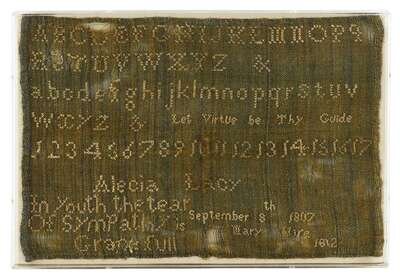 ABCDEFGHIJKLMNOPQ
RSTUVWXYZ &
abcdefghijklmnopqrstuv
wxyz & Let Virtue be Thy Guide
1 2 3 4 5 6 7 8 9 10 11 12 13 14 15 16 17
Alecia Lacy
In Youth the tear
Of Sympathy is September 8th 1807
Gracefull Mary 1812